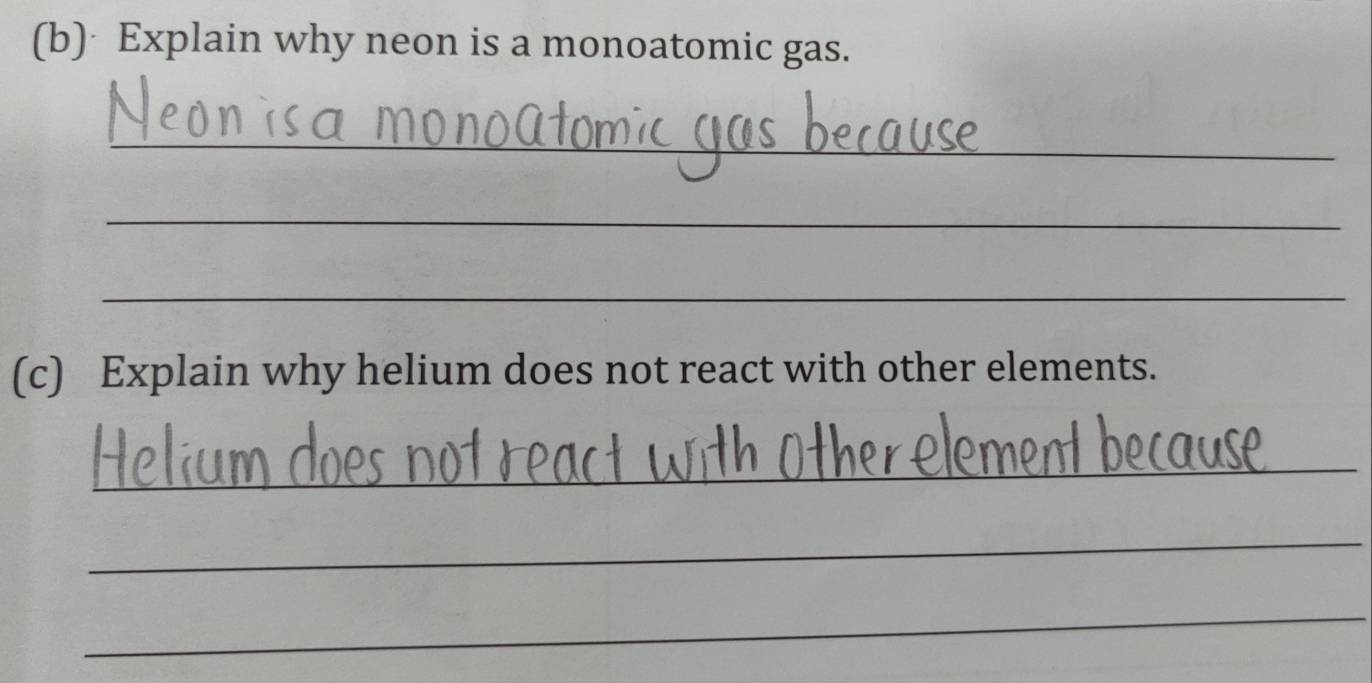 (b) Explain why neon is a monoatomic gas.
Neon is a monoatomic gas because
(c) Explain why helium does not react with other elements.
Helium does not react with other element because